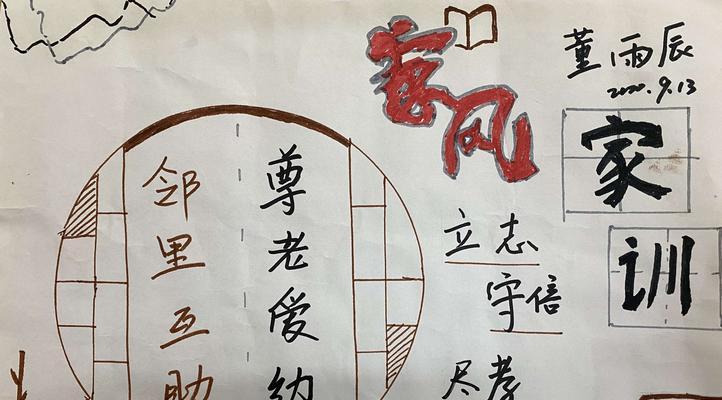 家风
董雨辰
2020.9.13
家训
尊老爱幼
邻里互助
立志
守信
尽孝